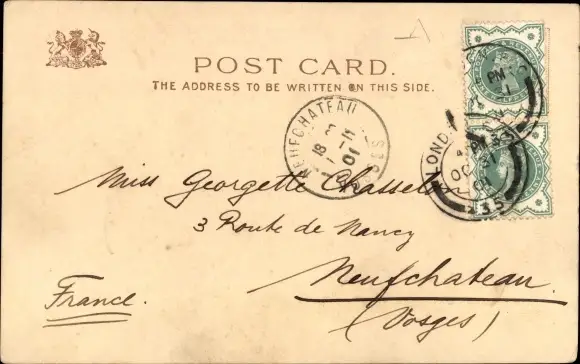 POST CARD.
THE ADDRESS TO BE WRITTEN ON THIS SIDE.
NEUFCHATEAU
VOSGES
18
01
LONDON
PM
OC 31
Miss Georgette Chasselon
3 Route de Nancy
Neufchateau.
(Vosges)
France.